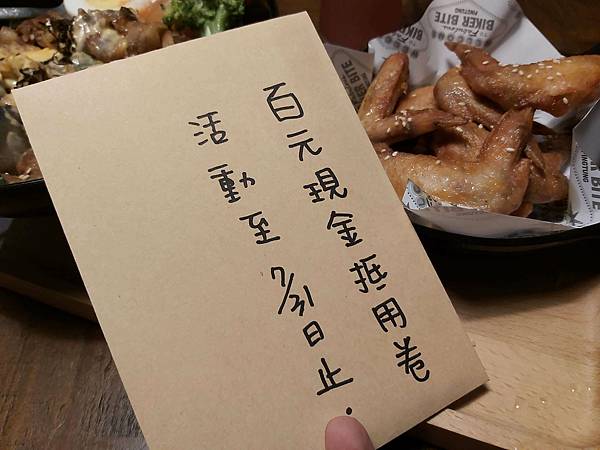 百元現金抵用卷
活動至7/31日止.
WELCOME TO
Fabulous
BIKER BITE
PINGTUNG